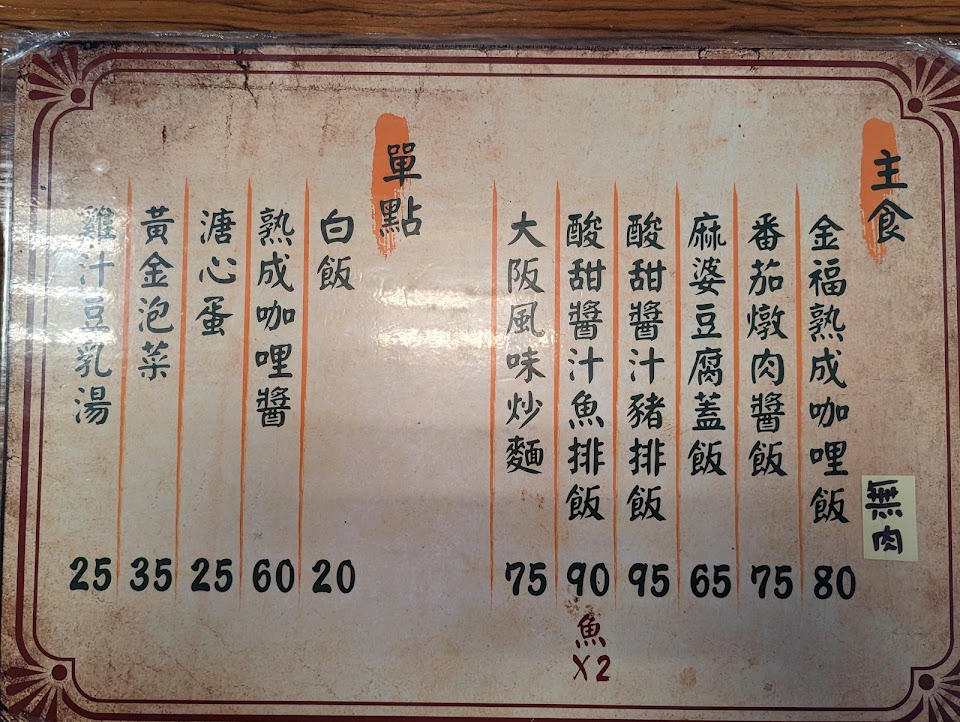 主食
金福熟成咖哩飯 80
無肉
番茄燉肉醬飯 75
麻婆豆腐蓋飯 65
酸甜醬汁豬排飯 95
酸甜醬汁魚排飯 90
魚
X2
大阪風味炒麵 75
單點
白飯 20
熟成咖哩醬 60
溏心蛋 25
黃金泡菜 35
雞汁豆乳湯 25